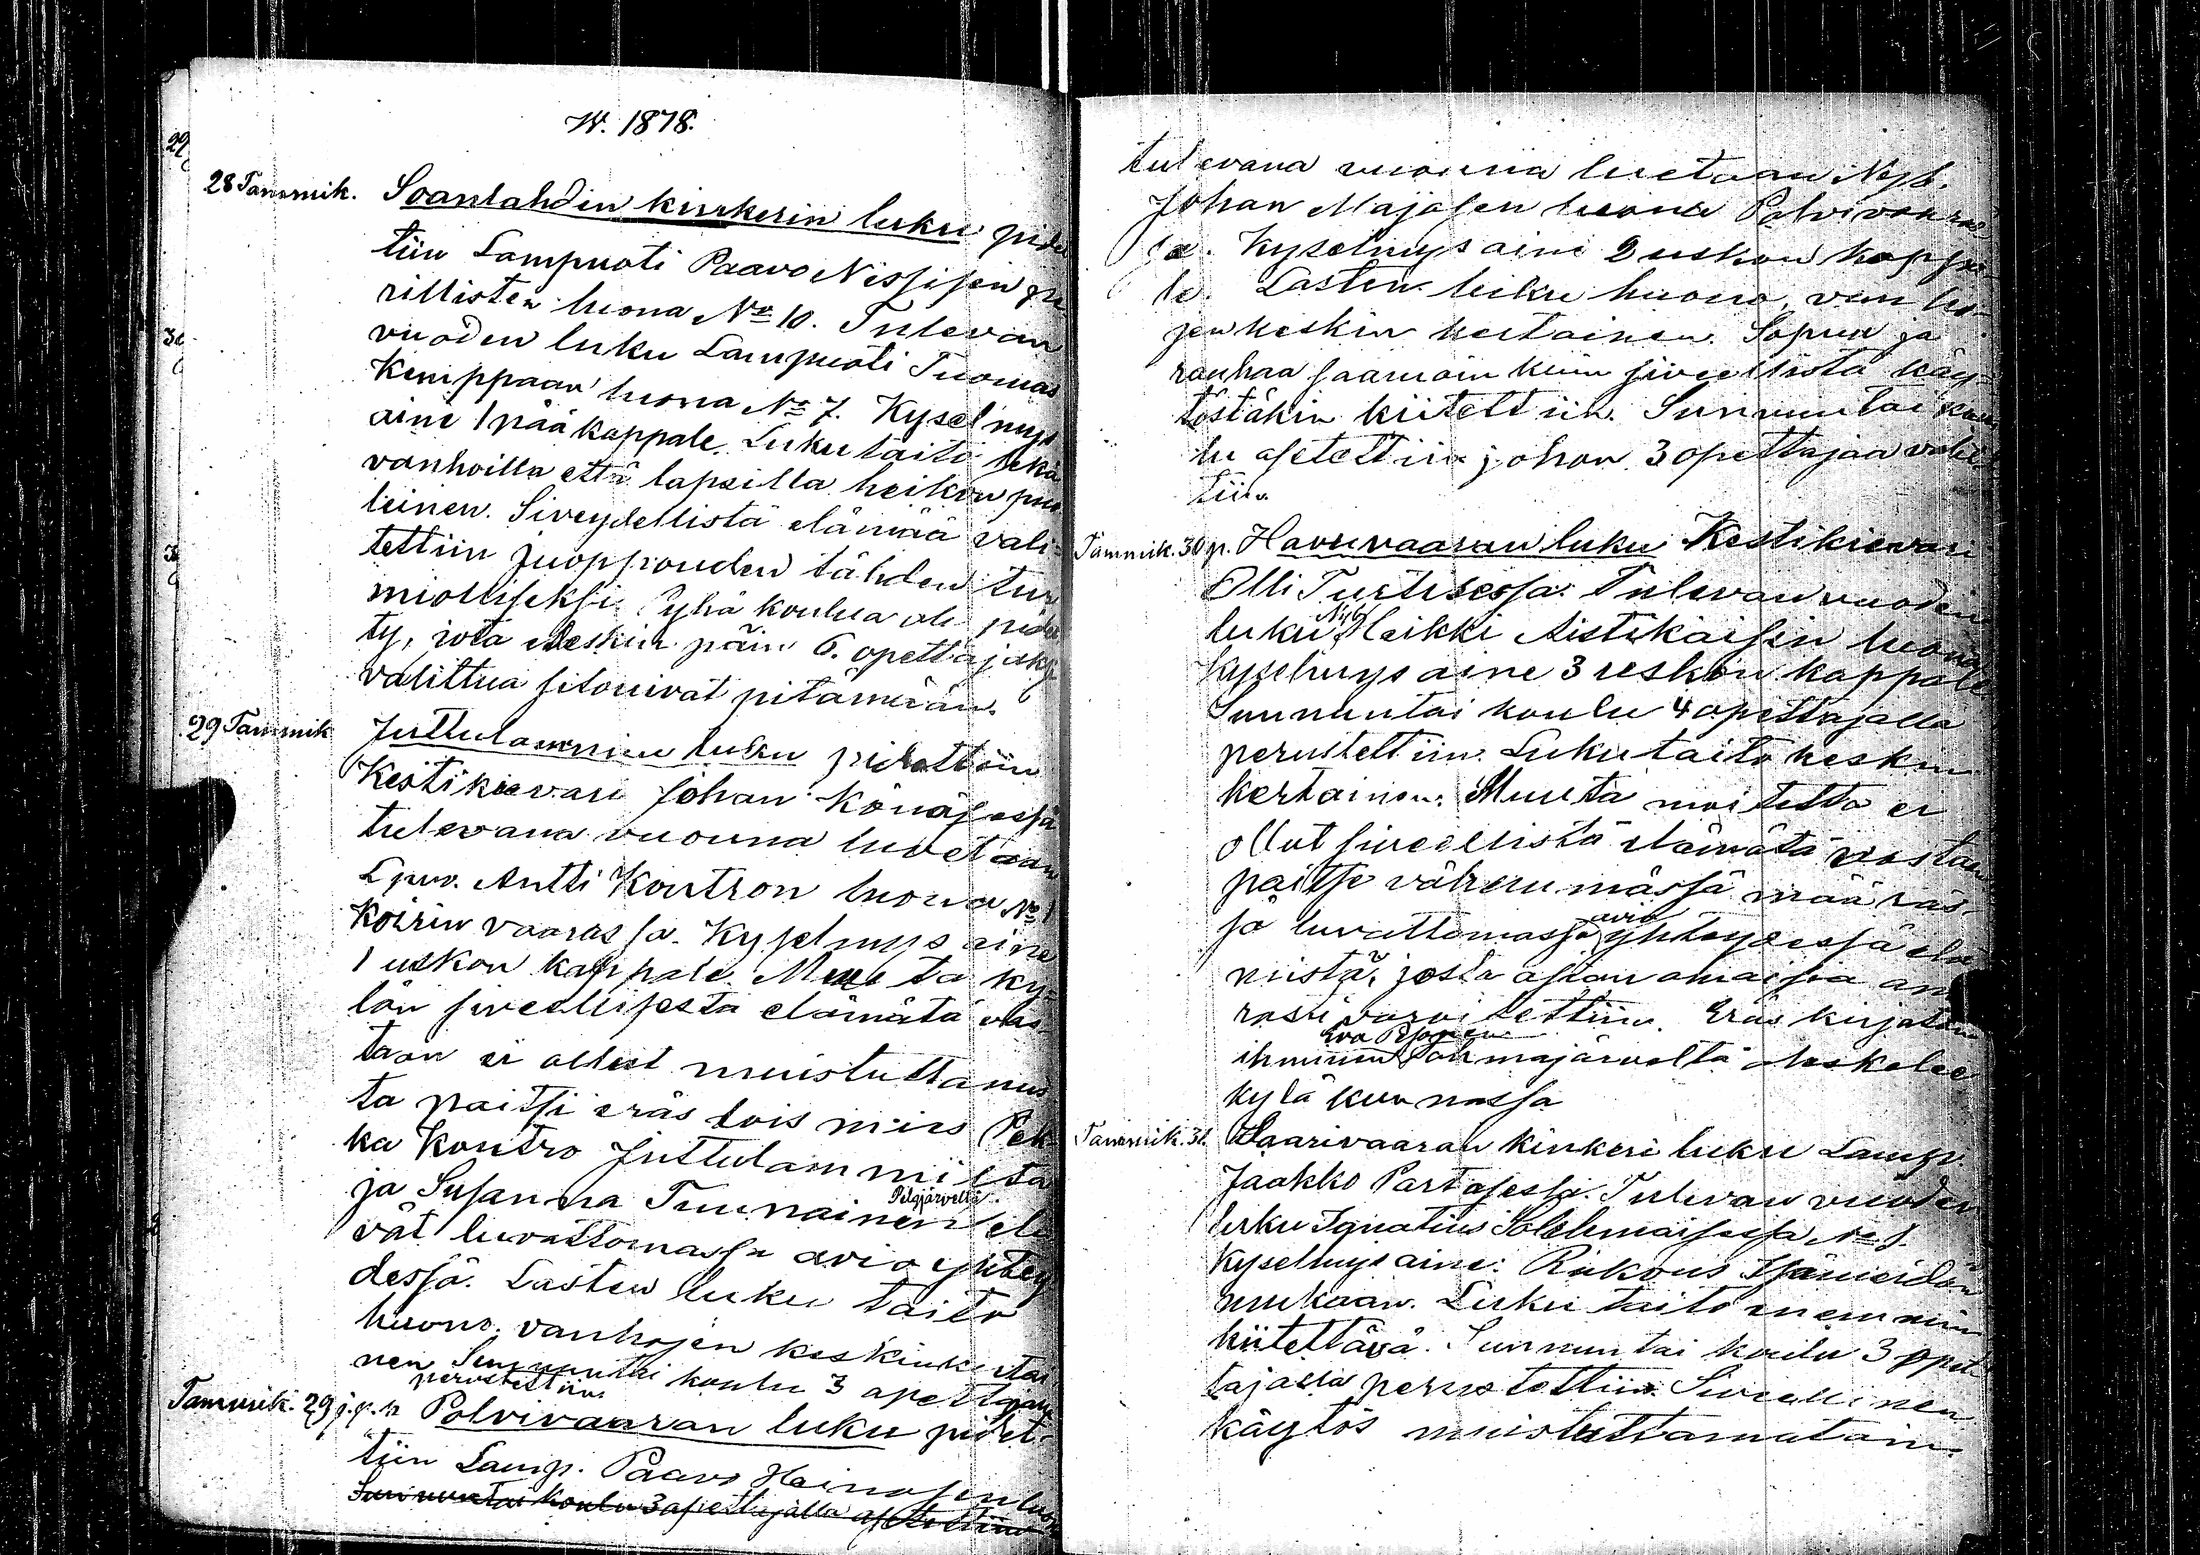 W. 1878.
28 Tammik. Soanlahdin kinkerin luku pidet
tiin Lampuoti Paavo Nissisen pe
rillisten luona No 10. Tulevan
vuoden luku Lampuoti Tuomas
Kemppaan luona No 7. Kyselmys
aine 1 pääkappale. Lukutaito sekä
vanhoilla että lapsilla heikon puo
leinen. Siveydellistä elämää vali-
tettiin juoppouden tähden tur
miolliseksi. Pyhä koulua oli pidet
ty, jota edeskin päin 6. opettajaksi
valittua sitouivat pitämään.
29 Tammik Juttulammin luku pidettiin
Kestikievari Johan Könösessä
tulevana vuonna luvetaan
Lpuo. Antti Kontron luona No 1
Koirin vaarassa. Kyselmys aine
1 uskon kappale. Muuta ky-
län siveellisestä elämätä vas
taan ei ollut muistuttamis
ta paitsi eräs lois mies Pek
ka Kontro Juttulammilta
ja Susanna Tuunainen Pelgjärveltä elä
vät luvattomassa avio yhtey
dessä. Lasten luku taito
huono, vanhojen keskinkertai
nen Sunnuntai koulu 3 opettajan
perustettiin.
Tammik. 29 j.p.p. Polvivaaran luku pidet-
tiin Lamp. Paavo Heinosen luon
Sunnuntai koulu 3 opettajalla asetettiin
tulevana vuonna luetaan Nyb.
Johan Majasen luona Polvivaaras
sa. Kyselmys aine 2 uskon kappa-
le. Lasten luku huono, van ho-
jen keskin kertainen. Sopua ja
rauhaa saamoin kuin siveellistä käy-
töstäkin kiitettiin. Sunnuntai kou
lu asetettiin johon 3 opettajaa valit
tiin.
Tammik. 30 p. Havuvaaran luku Kestikievari
Olli Turtisessa. Tulevan vuoden
luku Nyb. Heikki Aistikaisen luona
Kyselmys aine 3 uskon kappale
Sunnuntai koulu 4 opettajalla
perustettiin. Lukutaito keskin
kertainen. Muuta moitetta ei
ollut siveellistä elämätä vastaan
paitse vähemmässä määräs-
sä luvattomassa avio yhteydessä elä
mistä, josta asian omaisia an
rasti varoitettiin. Eräs kirjaton
ihminen Eva Repoinen Tohmajärveltä oleskelee
kylä kunnassa
Tammik. 31. Haarivaaran kinkeri luku Lamp.
Jaakko Partasessa. Tulevan vuoden
luku Ignatius Solehmaisessa No 1.
Kyselmys aine: Rukous Isämeidän
mukaan. Luku taito enemmin
kiitettävä. Sunnuntai koulu 3 opet
tajalla perustettiin. Siveellinen
käytös muistuttamatoin.